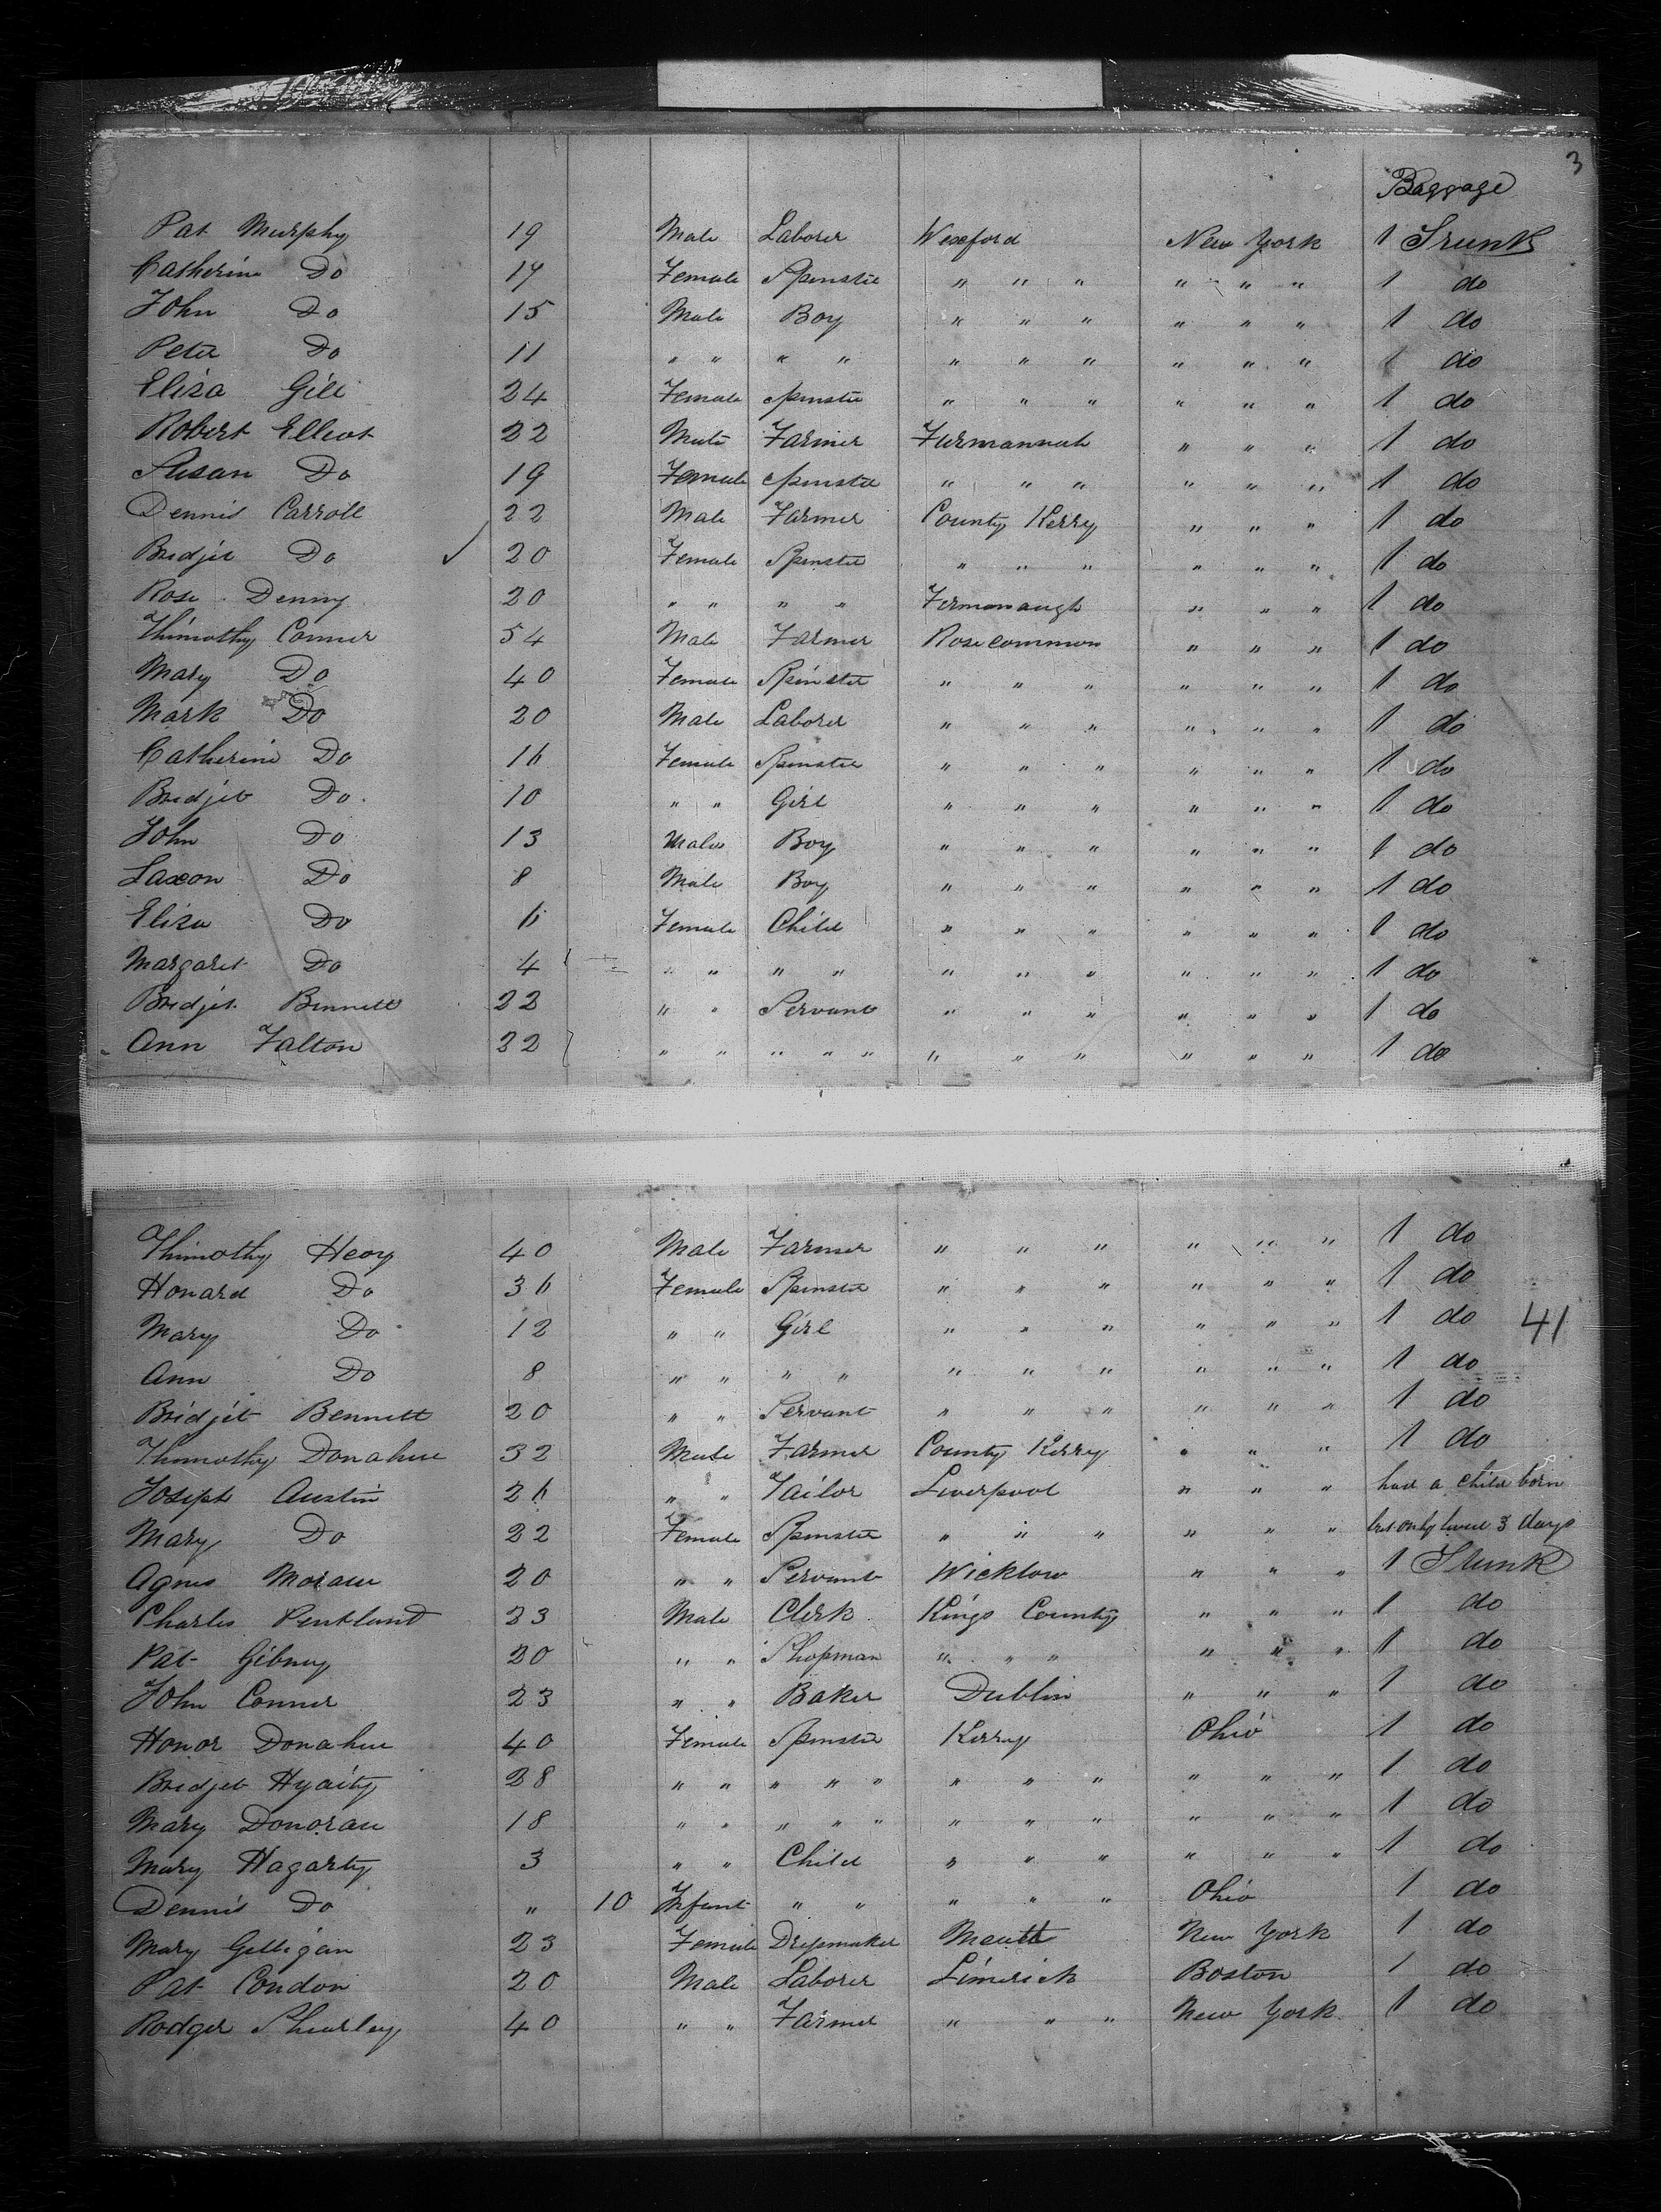 3
Baggage
Pat Murphy 19 Male Laborer Wexford New York 1 Trunk
Catherine Do 17 Female Spinster " " " " " " 1 do
John Do 15 Male Boy " " " " " " 1 do
Peter Do 11 " " " " " " " " " " 1 do
Eliza Gill 24 Female Spinster " " " " " " 1 do
Robert Elliot 22 Male Farmer Furmannah " " " 1 do
Susan Do 19 Female Spinster " " " " " " 1 do
Dennis Carroll 22 Male Farmer County Kerry " " " 1 do
Bridjit Do ✓ 20 Female Spinster " " " " " " 1 do
Rose Denny 20 " " " " Firmonaugh " " " 1 do
Thimothy Conner 54 Male Farmer Rosecommon " " " 1 do
Mary Do 40 Female Spinster " " " " " " 1 do
Mark Do 20 Male Laborer " " " " " " 1 do
Catherine Do 16 Female Spinster " " " " " " 1 do
Bridjit Do 10 " " Girl " " " " " " 1 do
John Do 13 Male Boy " " " " " " 1 do
Laxon Do 8 Male Boy " " " " " " 1 do
Eliza Do 6 Female Child " " " " " " 1 do
Margaret Do 4 " " " " " " " " " " 1 do
Bridjit Bennett 22 " " Servant " " " " " " 1 do
Ann Falton 22 " " " " " " " " " " " 1 do
Thimothy Heary 40 Male Farmer " " " " " " 1 do
Honard Do 36 Female Spinster " " " " " " 1 do
Mary Do 12 " " Girl " " " " " " 1 do 41
Ann Do 8 " " " " " " " " " " 1 do
Bridjit Bennett 20 " " Servant " " " " " " 1 do
Thimothy Donahue 32 Male Farmer County Kerry " " " 1 do
Joseph Austin 26 " " Tailor Liverpool " " " had a child born
Mary Do 22 Female Spinster " " " " " " but only lived 3 days
Agnes Moraw 20 " " Servant Wicklow " " " 1 Trunk
Charles Pentland 23 Male Clerk Kings County " " " 1 do
Pat Gibney 20 " " Shopman " " " " " " 1 do
John Conner 23 " " Baker Dublin " " " 1 do
Honor Donahue 40 Female Spinster Kerry Ohio 1 do
Bridjet Hyaity 28 " " " " " " " " " " " 1 do
Mary Donovan 18 " " " " " " " " " " " 1 do
Mary Hagarty 3 " " Child " " " " " " 1 do
Dennis Do " 10 Infant " " " " " Ohio 1 do
Mary Gilligan 23 Female Dressmaker Meath New York 1 do
Pat Condon 20 Male Laborer Limerick Boston 1 do
Rodger Shurley 40 " " Farmer " " " New York 1 do